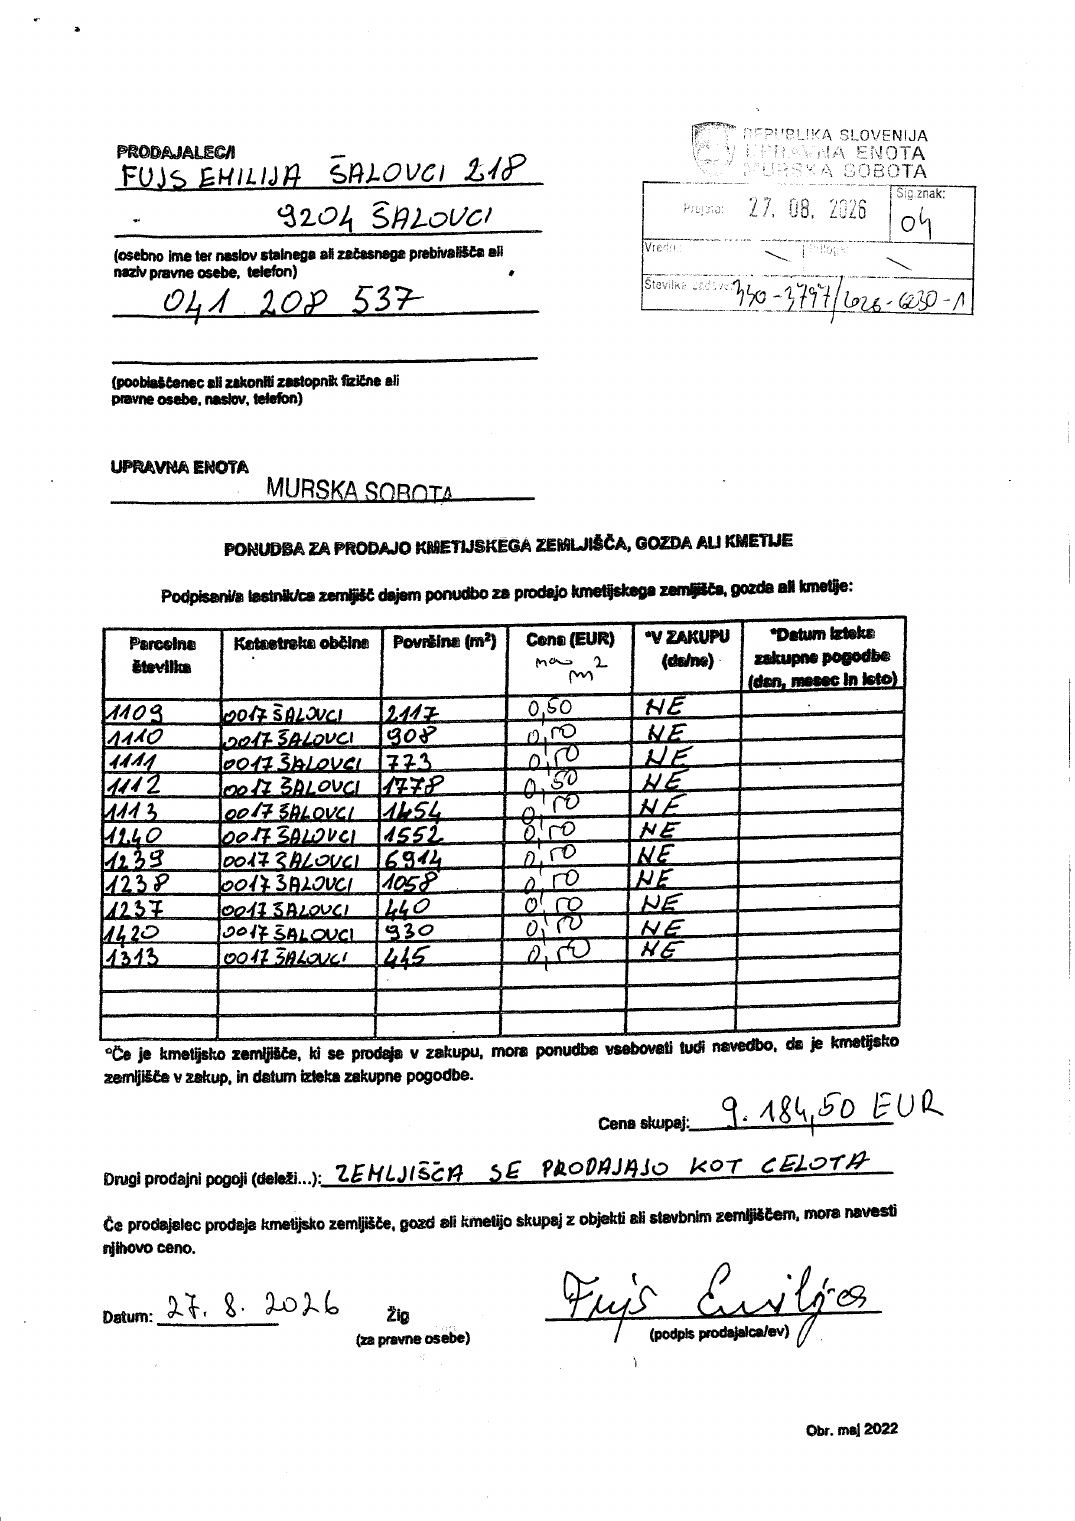 REPUBLIKA SLOVENIJA
UPRAVNA ENOTA
MURSKA SOBOTA
Prejeto: 27. 08. 2026
Sig.znak:
04
Številka 330-3797/2026-6230-1
PRODAJALEC/I
FUJS EMILIJA ŠALOVCI 218
9204 ŠALOVCI
(osebno ime ter naslov stalnega ali začasnega prebivališča ali
naziv pravne osebe, telefon)
041 208 537
(pooblaščenec ali zakoniti zastopnik fizične ali
pravne osebe, naslov, telefon)
UPRAVNA ENOTA
MURSKA SOBOTA
PONUDBA ZA PRODAJO KMETIJSKEGA ZEMLJIŠČA, GOZDA ALI KMETIJE
Podpisani/a lastnik/ca zemljišč dajem ponudbo za prodajo kmetijskega zemljišča, gozda ali kmetije:
Parcelna številka | Katastrska občina | Površina (m²) | Cena (EUR) na m² | *V ZAKUPU (da/ne) | *Datum izteka zakupne pogodbe (dan, mesec in leto)
1109 | 0017 ŠALOVCI | 2117 | 0,50 | NE
1110 | 0017 ŠALOVCI | 908 | 0,50 | NE
1111 | 0017 ŠALOVCI | 773 | 0,50 | NE
1112 | 0017 ŠALOVCI | 1778 | 0,50 | NE
1113 | 0017 ŠALOVCI | 1454 | 0,50 | NE
1240 | 0017 ŠALOVCI | 1552 | 0,50 | NE
1239 | 0017 ŠALOVCI | 6914 | 0,50 | NE
1238 | 0017 ŠALOVCI | 1058 | 0,50 | NE
1237 | 0017 ŠALOVCI | 440 | 0,50 | NE
1420 | 0017 ŠALOVCI | 930 | 0,50 | NE
1313 | 0017 ŠALOVCI | 445 | 0,50 | NE
*Če je kmetijsko zemljišče, ki se prodaja v zakupu, mora ponudba vsebovati tudi navedbo, da je kmetijsko
zemljišče v zakup, in datum izteka zakupne pogodbe.
Cena skupaj: 9.184,50 EUR
Drugi prodajni pogoji (deleži...): ZEMLJIŠČA SE PRODAJAJO KOT CELOTA
Če prodajalec prodaja kmetijsko zemljišče, gozd ali kmetijo skupaj z objekti ali stavbnim zemljiščem, mora navesti
njihovo ceno.
Datum: 27. 8. 2026
Žig
(za pravne osebe)
Fujs Emilija
(podpis prodajalca/ev)
Obr. maj 2022